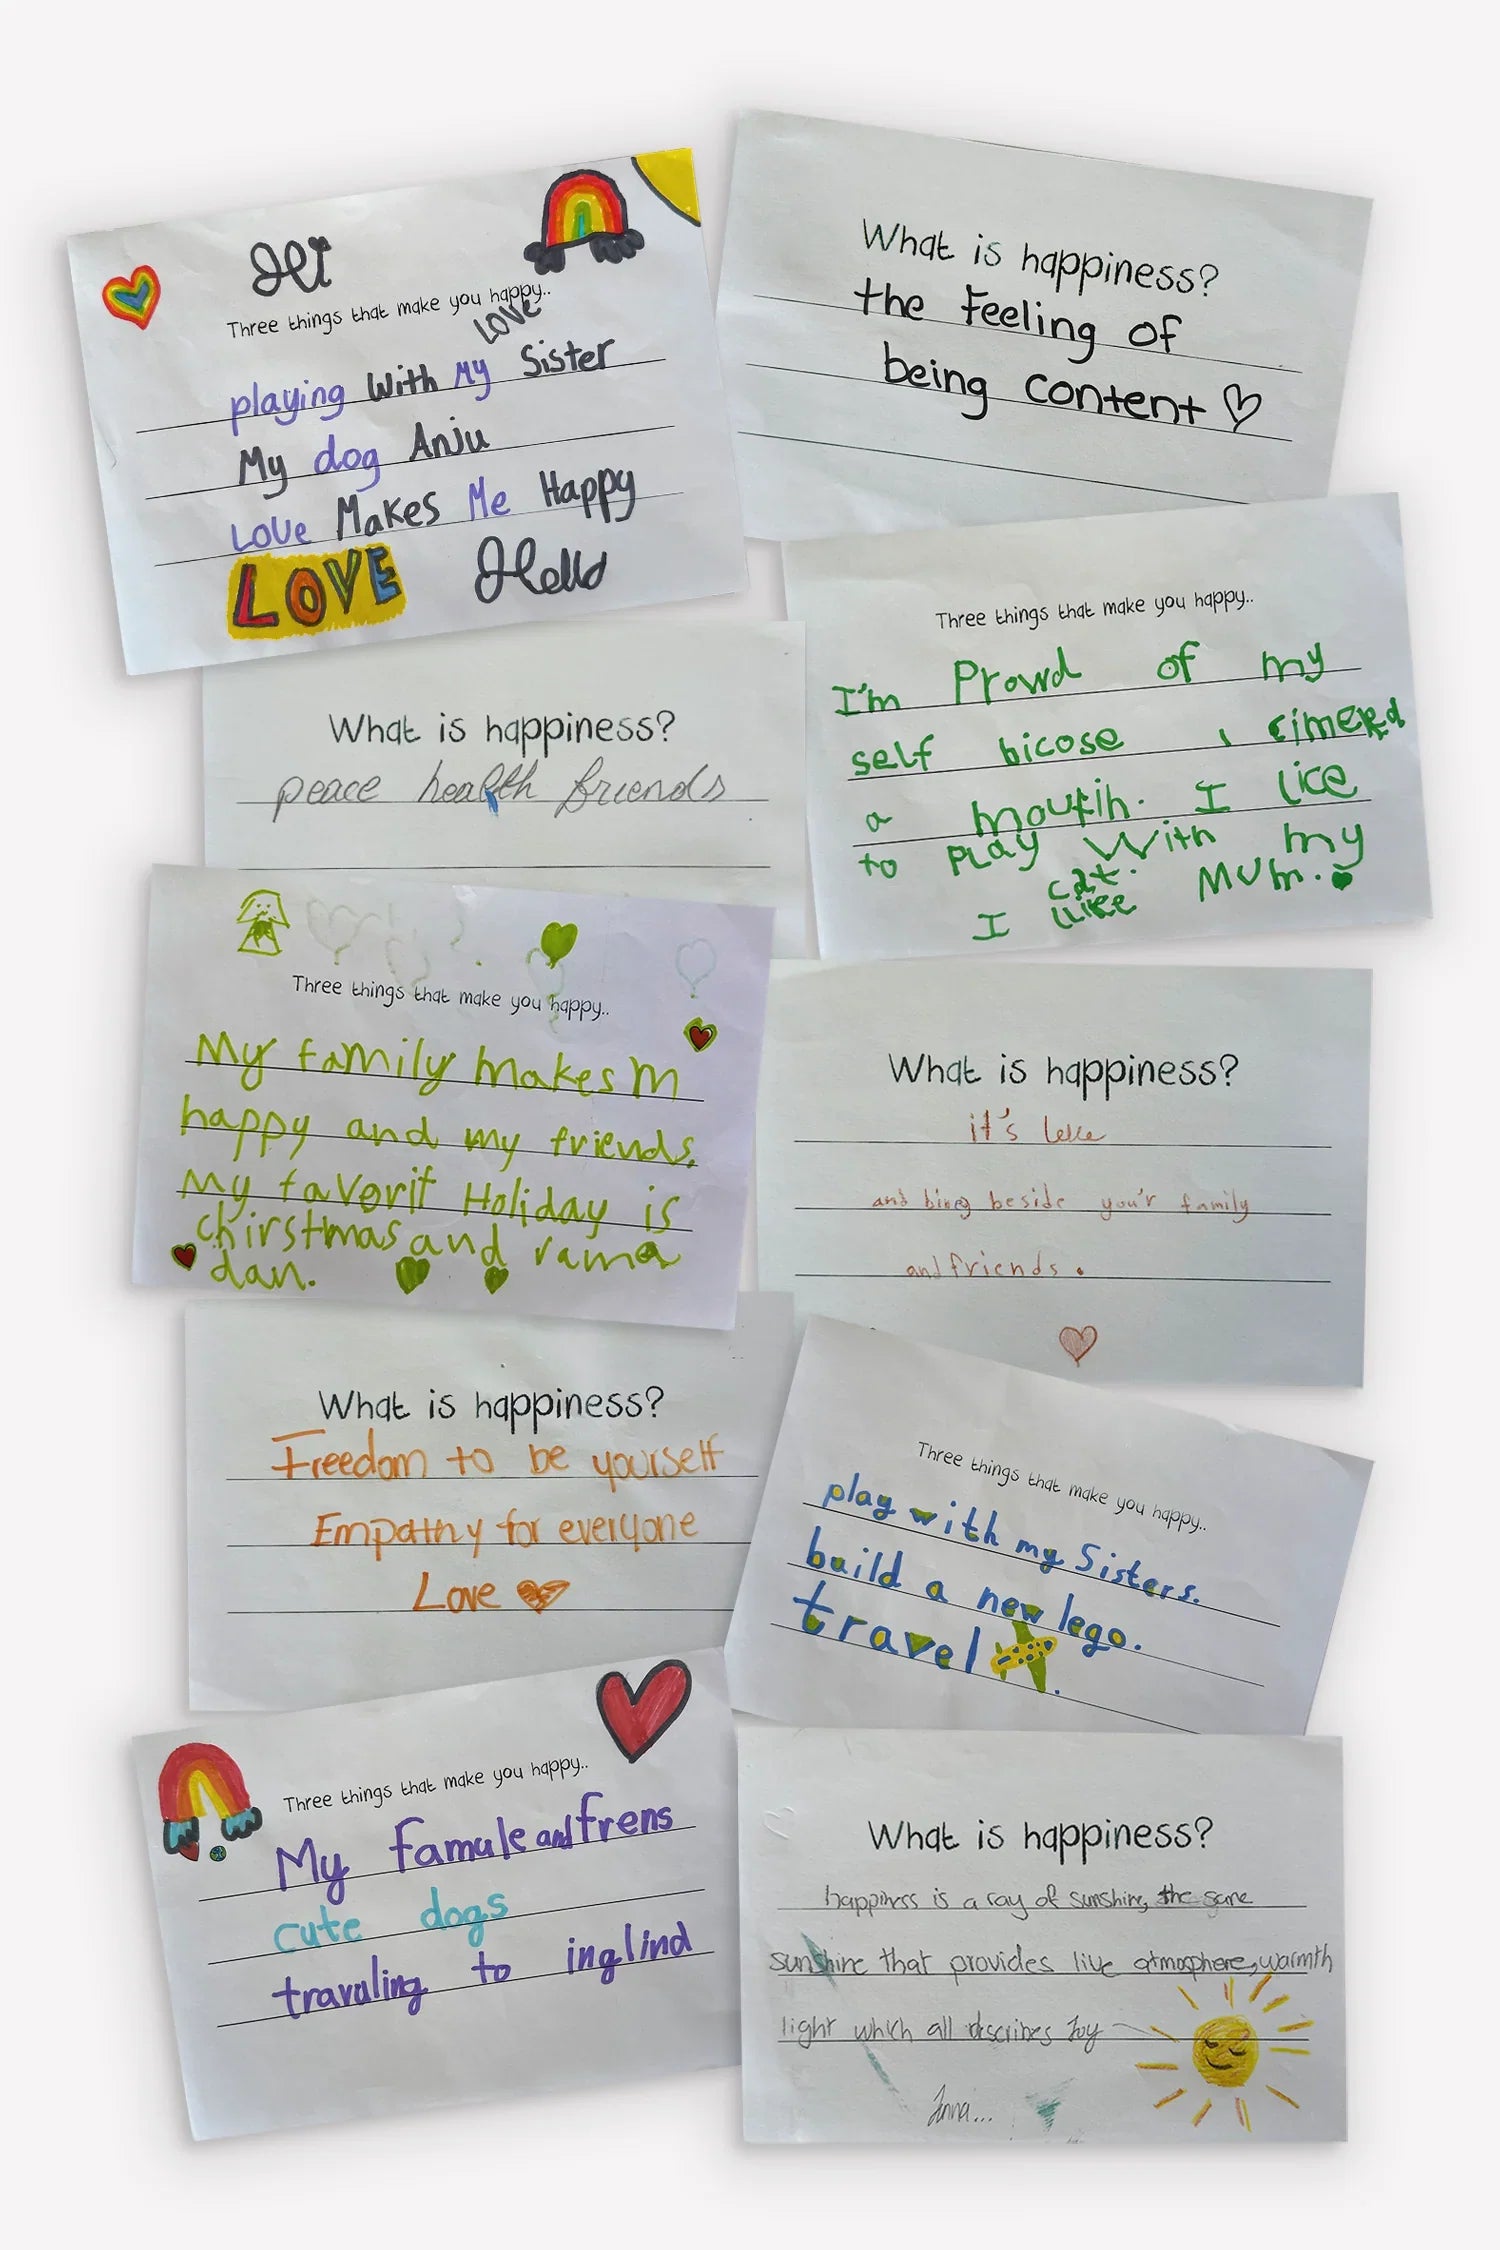 Hi
Three things that make you happy..
LOVE
playing With My Sister
My dog Anju
Love Makes Me Happy
LOVE Hello
What is happiness?
the Feeling of
being content
What is happiness?
peace health friends
Three things that make you happy..
I'm Prowd of my
self bicose i climerd
a moutih. I lice
to PLay With my
cat. MUm.
I like
Three things that make you happy..
My family makes m
happy and my friends.
My favorit Holiday is
chirstmas and rama
dan.
What is happiness?
it's
and bing beside you'r family
and friends.
What is happiness?
Freedom to be yourself
Empathy for everyone
Love
Three things that make you happy..
play with my Sisters.
build a new lego.
travel .
Three things that make you happy..
My famule and frens
cute dogs
travuling to inglind
What is happiness?
happiness is a ray of sunshine, the same
sunshine that provides live atmosphere, warmth
light which all describes Joy